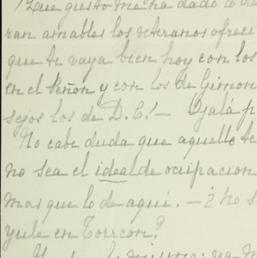 ¡Que gusto me ha dado lo de
ran amables los veteranos ofrec
que te vaya bien hoy con los
en el Peñon y con los de Gimon
sejos los de D. C! — Ojalá p
No cabe duda que aquello te
no sea el ideal de ocupacion
mas que lo de aquí. — ¿ no s
yule en Torreon?